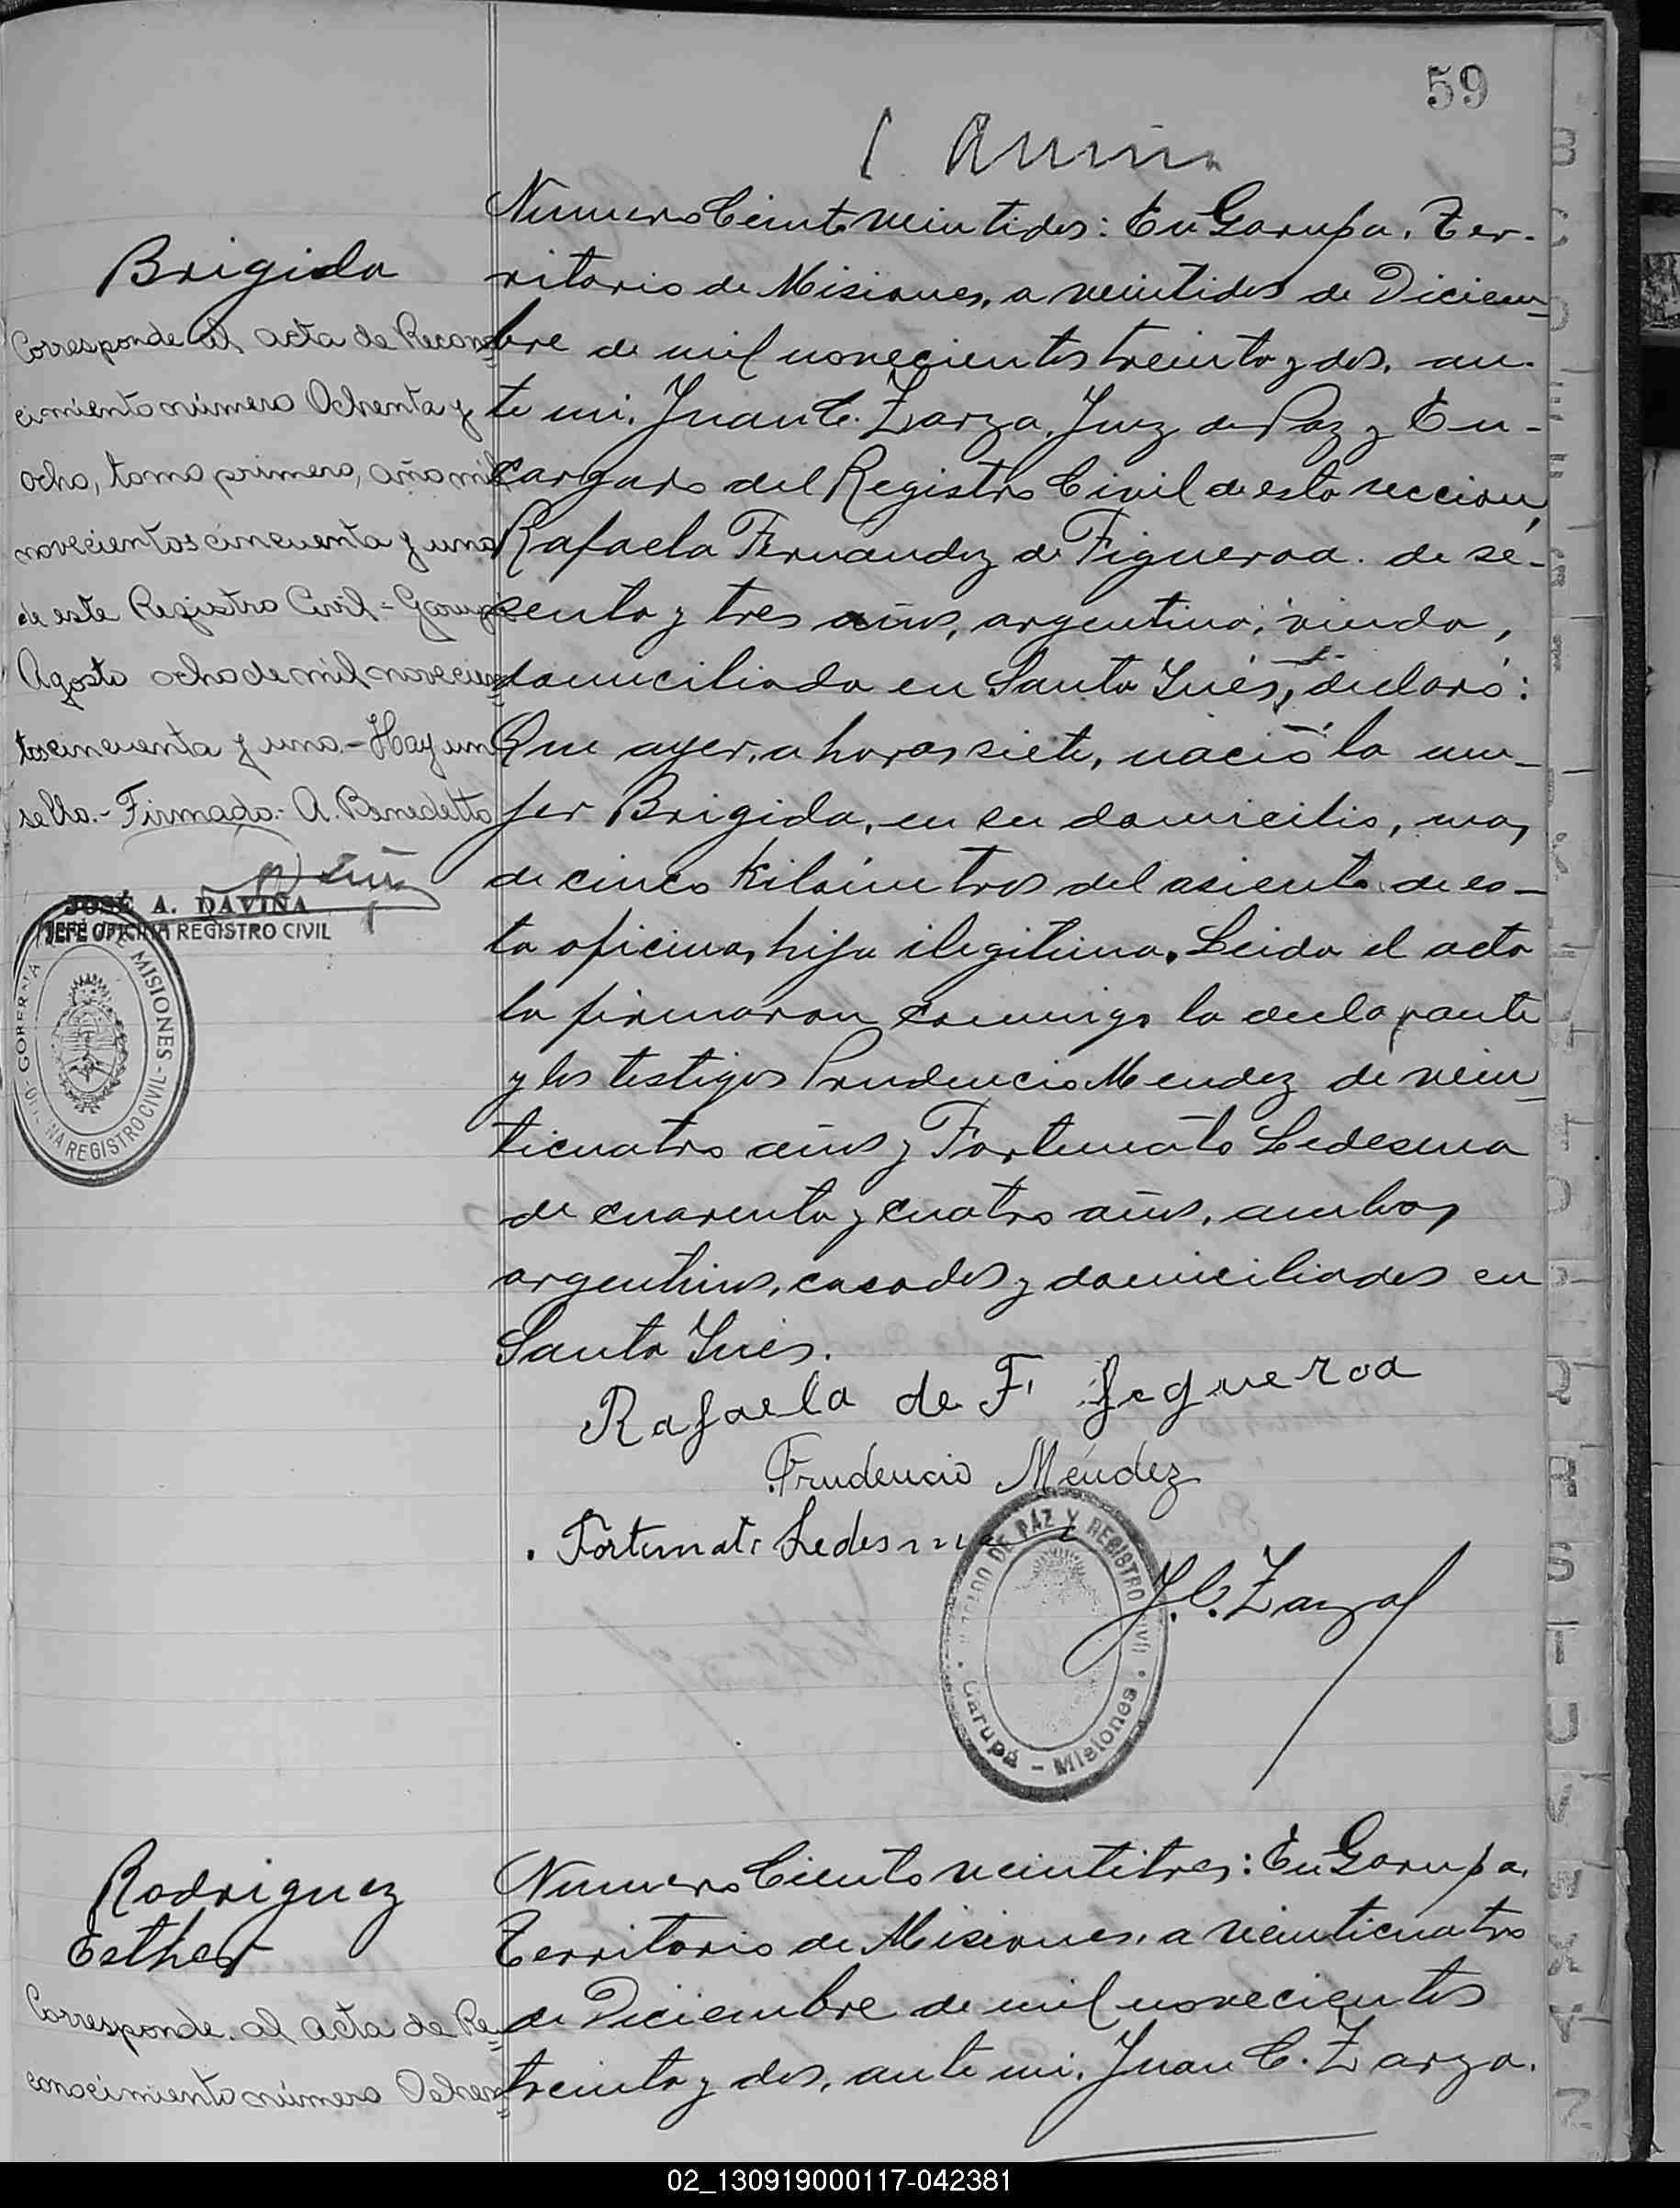 59
Numero Ciento veintidos: En Garupa, Ter-
ritorio de Misiones, a veintidos de Diciem-
bre de mil novecientos treinta y dos, an-
te mi, Juan C. Zarza, Juez de Paz y En-
cargado del Registro Civil de esta seccion,
Rafaela Fernández de Figueroa de se-
senta y tres años, argentina, viuda,
domiciliada en Santa Inés, declaró:
Que ayer, a horas siete, nació la mu-
jer Brigida, en su domicilio, mas
de cinco kilómetros del asiento de es-
ta oficina, hija ilegitima. Leida el acta
la firmaron conmigo la declarante
y los testigos Prudencio Mendez de vein-
ticuatro años y Fortunato Ledesma
de cuarenta y cuatro años, ambos
argentinos, casados y domiciliados en
Santa Inés.
Rafaela de F. Figueroa
Prudencio Méndez
Fortunato Ledesma
J. C. Zarza
JUZGADO DE PAZ Y REGISTRO CIVIL
Garupá - Misiones
Brigida
Corresponde al acta de Recono-
cimiento número Ochenta y
ocho, tomo primero, año mil
novecientos cincuenta y uno
de este Registro Civil = Garupá
Agosto ocho de mil novecien-
tos cincuenta y uno. - Hay un
sello. - Firmado: A. Benedetto
JOSÉ A. DAVIÑA
JEFE OFICINA REGISTRO CIVIL
MISIONES
REGISTRO CIVIL
Rodriguez
Esther
Corresponde al acta de Re-
conocimiento número Ochen-
Numero Ciento veintitres: En Garupa,
Territorio de Misiones, a veinticuatro
de Diciembre de mil novecientos
treinta y dos, ante mi, Juan C. Zarza,
02_130919000117-042381